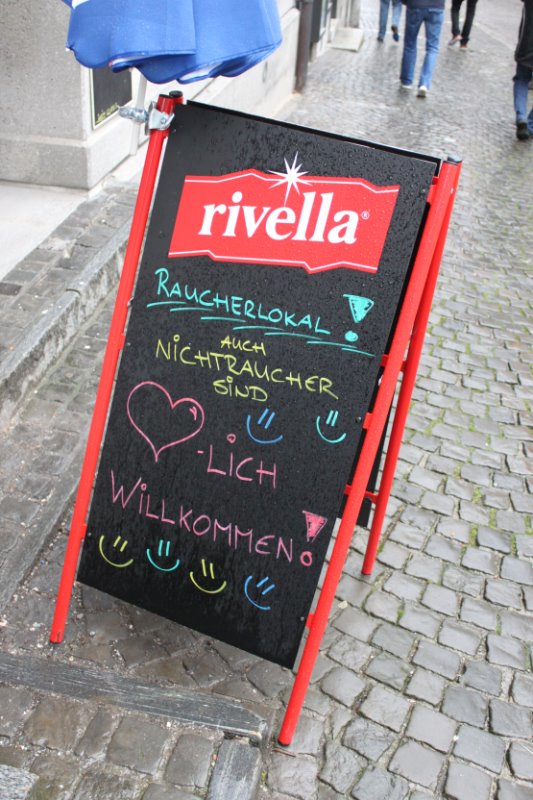 rivella®
RAUCHERLOKAL!
AUCH
NICHTRAUCHER
SIND
-LICH
WILLKOMMEN!